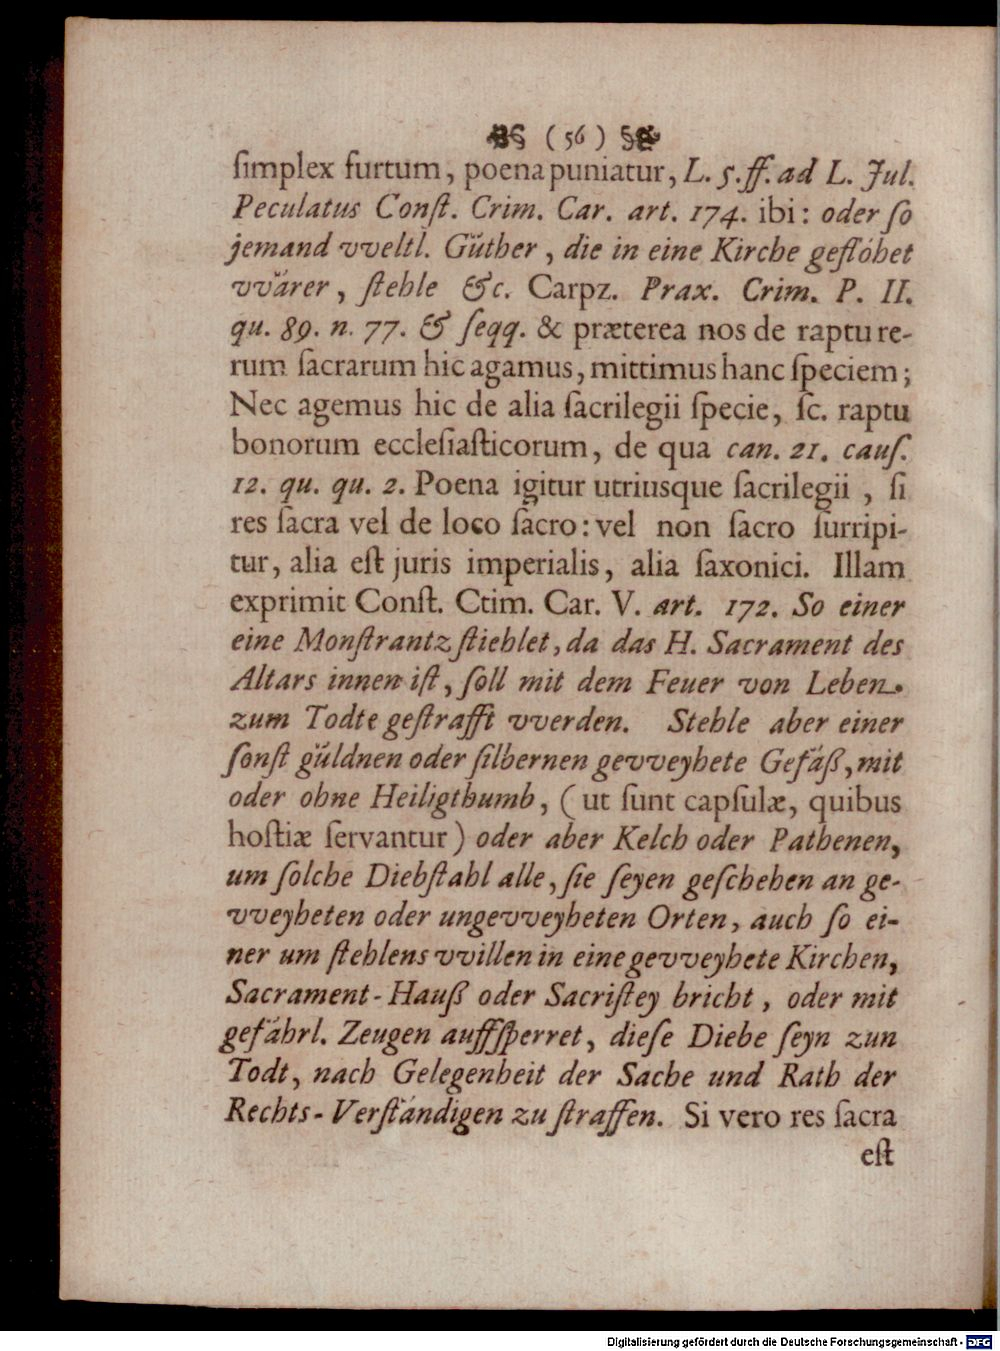 ( 56 )
ſimplex furtum, poena puniatur, L. 5. ff. ad L. Jul.
Peculatus Conſt. Crim. Car. art. 174. ibi: oder ſo
jemand vveltl. Güther, die in eine Kirche geflöhet
vvärer, ſtehle &c. Carpz. Prax. Crim. P. II.
qu. 89. n. 77. & ſeqq. & præterea nos de raptu re-
rum ſacrarum hic agamus, mittimus hanc ſpeciem;
Nec agemus hic de alia ſacrilegii ſpecie, ſc. raptu
bonorum eccleſiaſticorum, de qua can. 21. cauſ.
12. qu. qu. 2. Poena igitur utriusque ſacrilegii, ſi
res ſacra vel de loco ſacro: vel non ſacro ſurripi-
tur, alia eſt juris imperialis, alia ſaxonici. Illam
exprimit Conſt. Ctim. Car. V. art. 172. So einer
eine Monſtrantz ſtiehlet, da das H. Sacrament des
Altars innen iſt, ſoll mit dem Feuer von Leben
zum Todte geſtrafft vverden. Stehle aber einer
ſonſt güldnen oder ſilbernen gevveyhete Gefäß, mit
oder ohne Heiligthumb, (ut ſunt capſulæ, quibus
hoſtiæ ſervantur) oder aber Kelch oder Pathenen,
um ſolche Diebſtahl alle, ſie ſeyen geſchehen an ge-
vveyheten oder ungevveyheten Orten, auch ſo ei-
ner um ſtehlens vvillen in eine gevveyhete Kirchen,
Sacrament-Hauß oder Sacriſtey bricht, oder mit
gefährl. Zeugen auffſperret, dieſe Diebe ſeyn zun
Todt, nach Gelegenheit der Sache und Rath der
Rechts-Verſtändigen zu ſtraffen. Si vero res ſacra
eſt
Digitalisierung gefördert durch die Deutsche Forschungsgemeinschaft - DFG